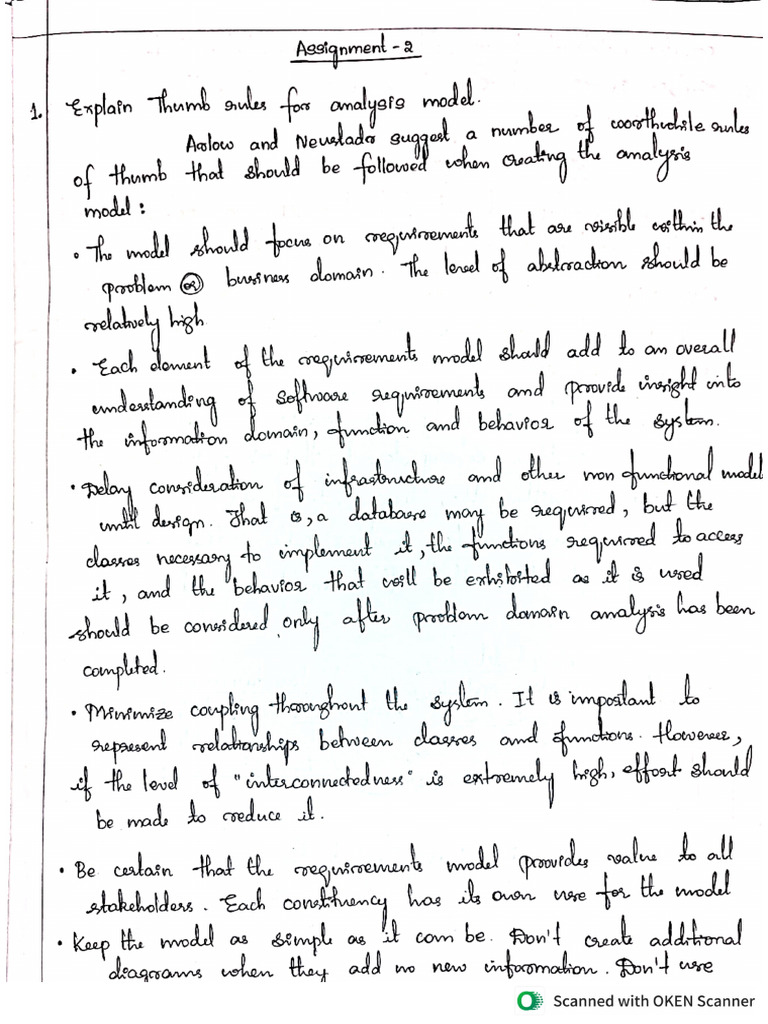 Assignment - 2
1. Explain Thumb rules for analysis model.
Arlow and Neustadr suggest a number of worthwhile rules
of thumb that should be followed when creating the analysis
model :
• The model should focus on requirements that are visible within the
problem or business domain. The level of abstraction should be
relatively high
• Each element of the requirements model should add to an overall
understanding of software requirements and provide insight into
the information domain, function and behavior of the system.
• Delay consideration of infrastructure and other non functional model
until design. That is, a database may be required, but the
classes necessary to implement it, the functions required to access
it, and the behavior that will be exhibited as it is used
should be considered only after problem domain analysis has been
completed.
• Minimize coupling throughout the system. It is important to
represent relationships between classes and functions. However,
if the level of "interconnectedness" is extremely high, effort should
be made to reduce it.
• Be certain that the requirements model provides value to all
stakeholders. Each constituency has its own use for the model
• Keep the model as simple as it can be. Don't create additional
diagrams when they add no new information. Don't use
Scanned with OKEN Scanner